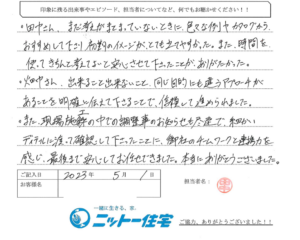 印象に残る出来事やエピソード、担当者についてなど、何でもお聞かせください！！
・田中さん、まだ数がまとまっていないときに、色々な例やカタログから
おすすめして下さり初期のイメージがとても立てやすかった。また、時間を
使ってきちんと教えて下さり安心させて下さったことがありがたかった。
・畑中さん、出来ること出来ないこと、同じ目的にも違うアプローチが
あることを明確に伝えて下さることで、信頼して進められました。
・また、現場施工の中での調整事のお知らせも丁寧で、細かい
ディテールに渡って確認して下さったことに、御社のチームワークと連携力を
感じ、最後まで安心してお任せできました。本当にありがとうございました。
ご記入日 2023年 5月 1日
担当者名：
お客様名
一緒に生きる、家。
ニットー住宅
ご協力、ありがとうございました！！